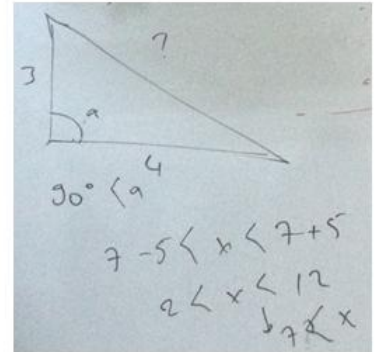 ?
3
a
4
90° < a
7 - 5 < x < 7 + 5
2 < x < 12